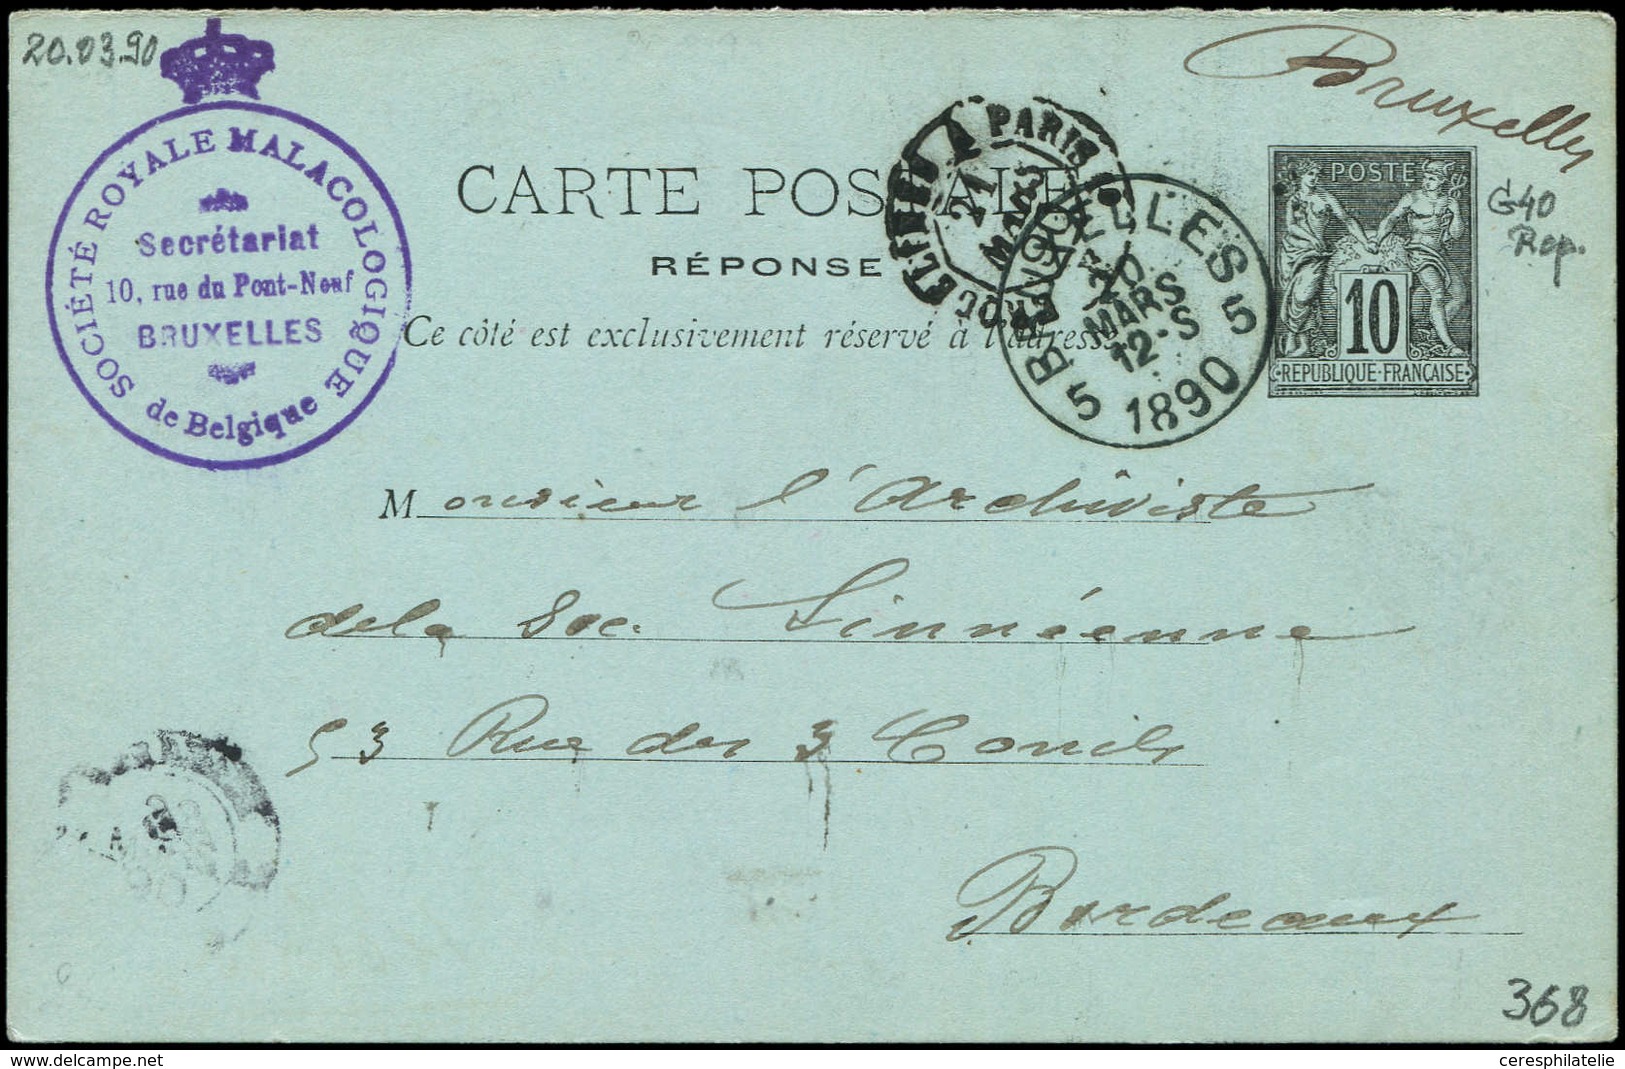 20.03.90
Bruxelles
SOCIÉTÉ ROYALE MALACOLOGIQUE
de Belgique
Secrétariat
10, rue du Pont-Neuf
BRUXELLES
CARTE POSTALE
RÉPONSE
Ce côté est exclusivement réservé à l'adresse
A PARIS
21
MARS
90
BRUXELLES
20
MARS
12-S
1890
5 5
POSTE
10
REPUBLIQUE·FRANÇAISE
G40
Rep.
Monsieur l'Archiviste
de la Soc. Linnéenne
53 Rue des 3 Conils
Bordeaux
90
368
ceresphilatelie